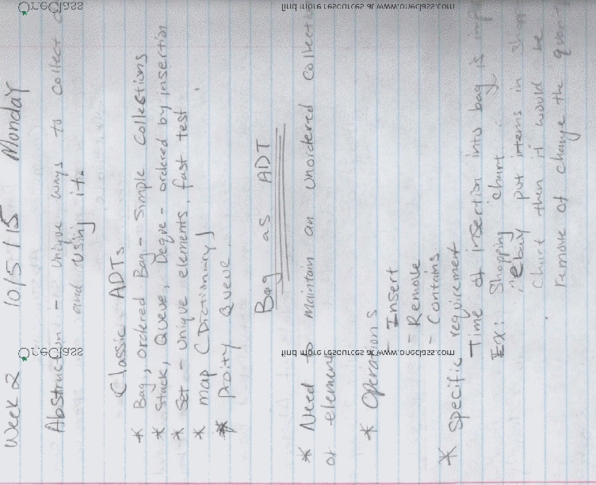 Week 2 10/5/15 Monday
Abstraction - Unique ways to collect
and using it.
Classic ADTs
* Bag, ordered Bag - Simple Collections
* Stack, Queue, Deque - ordered by insertion
* Set - Unique elements, fast test
* map (Dictionary)
* Priority Queue
Bag as ADT
* Need to maintain an unordered collection
of elements
* Operations
- Insert
- Remove
- Contains
* Specific requirement
Time of insertion into bag is
Ex: Shopping chart
"ebay put items in
Chart then it would be
remove of change the
OneClass
find more resources at www.oneclass.com
OneClass
find more resources at www.oneclass.com